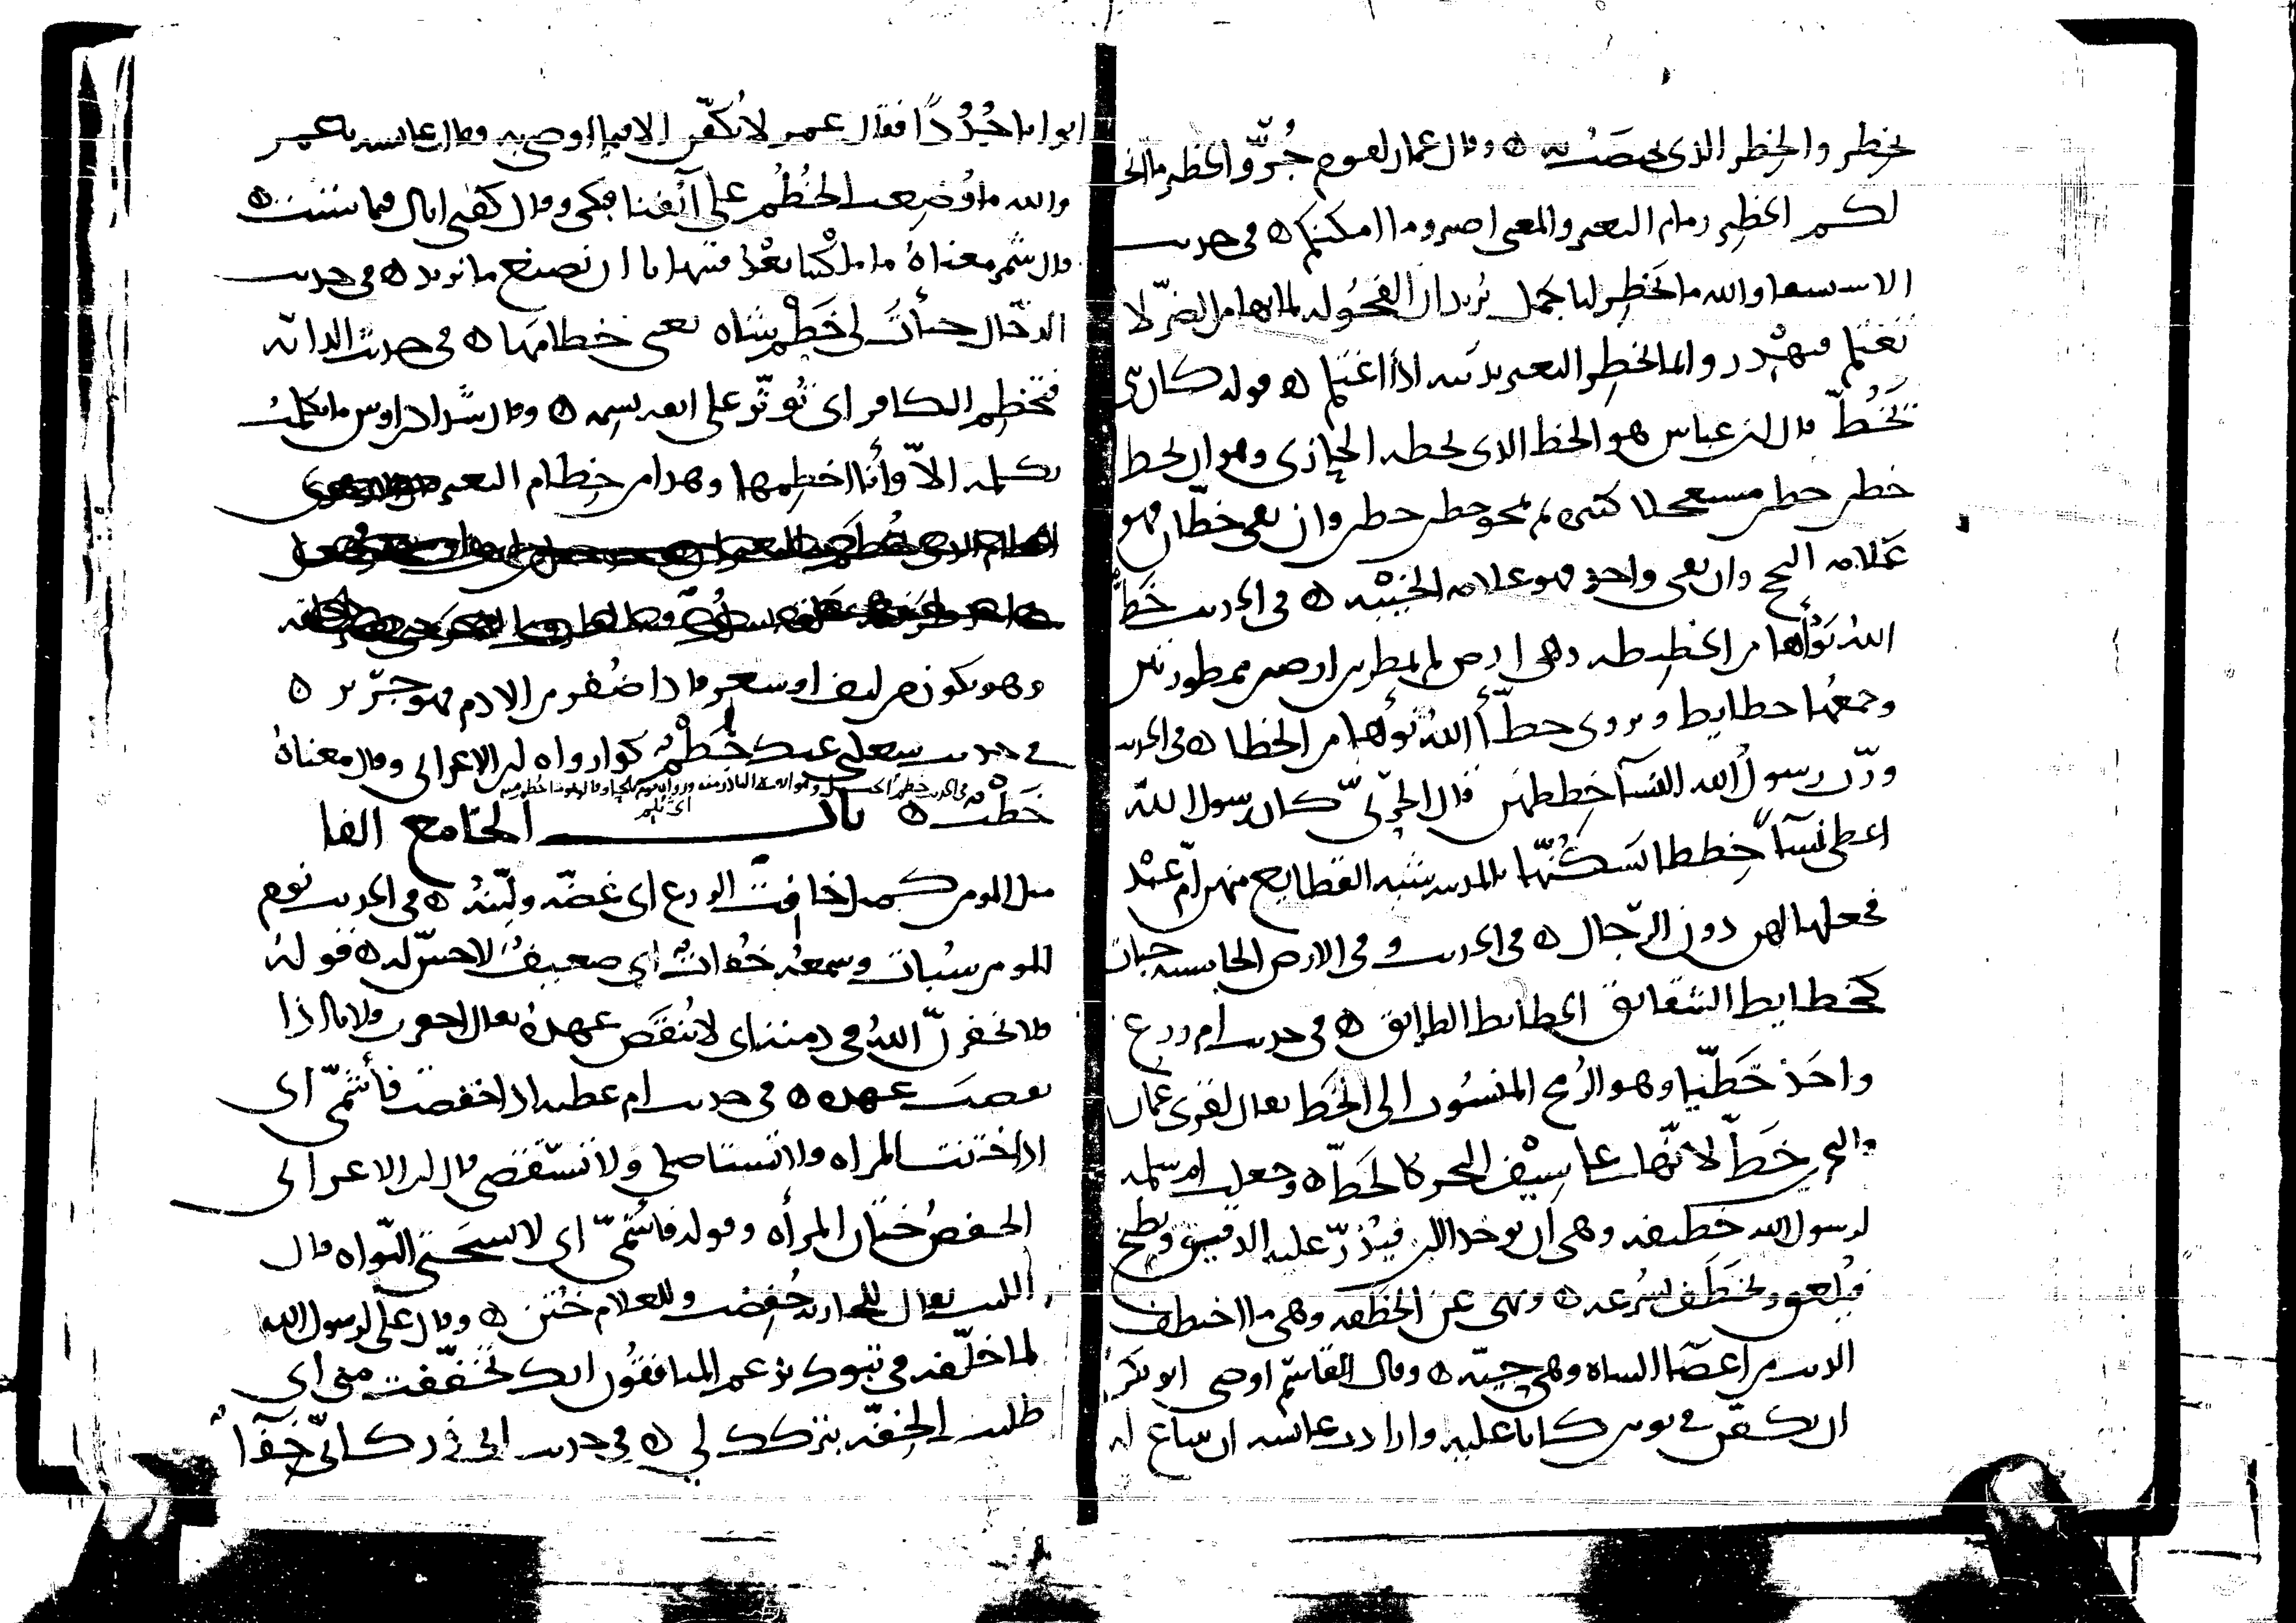 يخطر والخطر الذي يخضب به ه وقال عمار لقوم جروا الخطير ما انجر
لكم الخطير زمام البعير والمعنى اصبروا ما امكنكم ه في حديث
الاستسقا والله ما يخطر لنا جمل يريد ان الفحولة لما بها من الضر لا
تغتلم فتهدر وانما يخطر البعير بذنبه اذا اغتلم ه قوله كان نبي
يخط قال ابن عباس هو الخط الذي يخطه الحازي وهو ان يخط
خطين خطين مستعجلا كثيرة ثم يمحو خطين خطين وان بقي خطان فهو
علامة النجح وان بقي واحد فهو علامة الخيبة ه في الحديث خط
الله نوأها من الخطيطة وهي ارض لم تمطر بين ارضين ممطورتين
وجمعها خطايط ويروى خطأ الله نوأها من الخطا ه في الحديث
ورث رسول الله النساء خططهن قال الحربي كان رسول الله
اعطى نساء خططا يسكنها بالمدينة شبه القطايع منهن ام عبد
فجعلها لهن دون الرجال ه في الحديث وفي الارض الخامسة حيات
كخطايط الشقايق الخطايط الطرايق ه في حديث ام زرع
واخذ خطيا وهو الرمح المنسوب الى الخط يقال لقرى عمان
والبحرين خط لانها على سيف البحر كالخط ه وجعلت ام سلمة
لرسول الله خطيفة وهي ان يوخذ اللبن فيذر عليه الدقيق ويطبخ
فيلعق ويختطف بسرعة ه ونهى عن الخطفة وهي ما اختطف
الذيب من اعضا الشاة وهي حية ه وقال القاسم اوصى ابو بكر
ان يكفن في ثوبين كانا عليه وارادت عايشة ان تبتاع له
اثوابا جددا فقال عمر لا يكفن الا فيما اوصى به وقالت عايشة يا عمر
والله ما وضعت الخطم على آنفنا فبكى وقال كفني اباك فيما شئت ه
قال شمر معناه ما ملكتنا بعد فتنهانا ان نصنع ما نريد ه في حديث
الدجال خبأت لي خطم شاة يعني خطامها ه في حديث الدابة
فتخطم الكافر اي تؤثر على انفه بسمة ه وقال شداد بن اوس ما تكلمت
بكلمة الا وأنا اخطمها وهذا من خطام البعير
وهو يكون من ليف او شعر فاذا ضفر من الادم فهو جرير ه
في حديث خطم كذا رواه ابن الاعرابي وقال معناه
خطب ه باب الخا مع الفا
مثل المومن كمثل خافت الزرع اي غضه ولينه ه في الحديث نوم
المومن سبات وسمعه خفات اي ضعيف لا حس له ه قوله
فلا تخفرن الله في ذمته اي لا تنقض عهده يقال اخفرت فلانا اذا
نقضت عهده ه في حديث ام عطية اذا خفضت فأشمي اي
اذا ختنت المراة ولا تستاصلي ولا تستقصي قال ابن الاعرابي
الخفض ختان المرأة وقوله فاشمي اي لا تسحتي النواة قال
الليث يقال للجارية خفضت وللغلام ختن ه وقال علي لرسول الله
لما خلفه في تبوك يزعم المنافقون انك تخففت مني اي
طلبت الخفة بتركك لي ه في حديث ابي ذر كاني خفاء